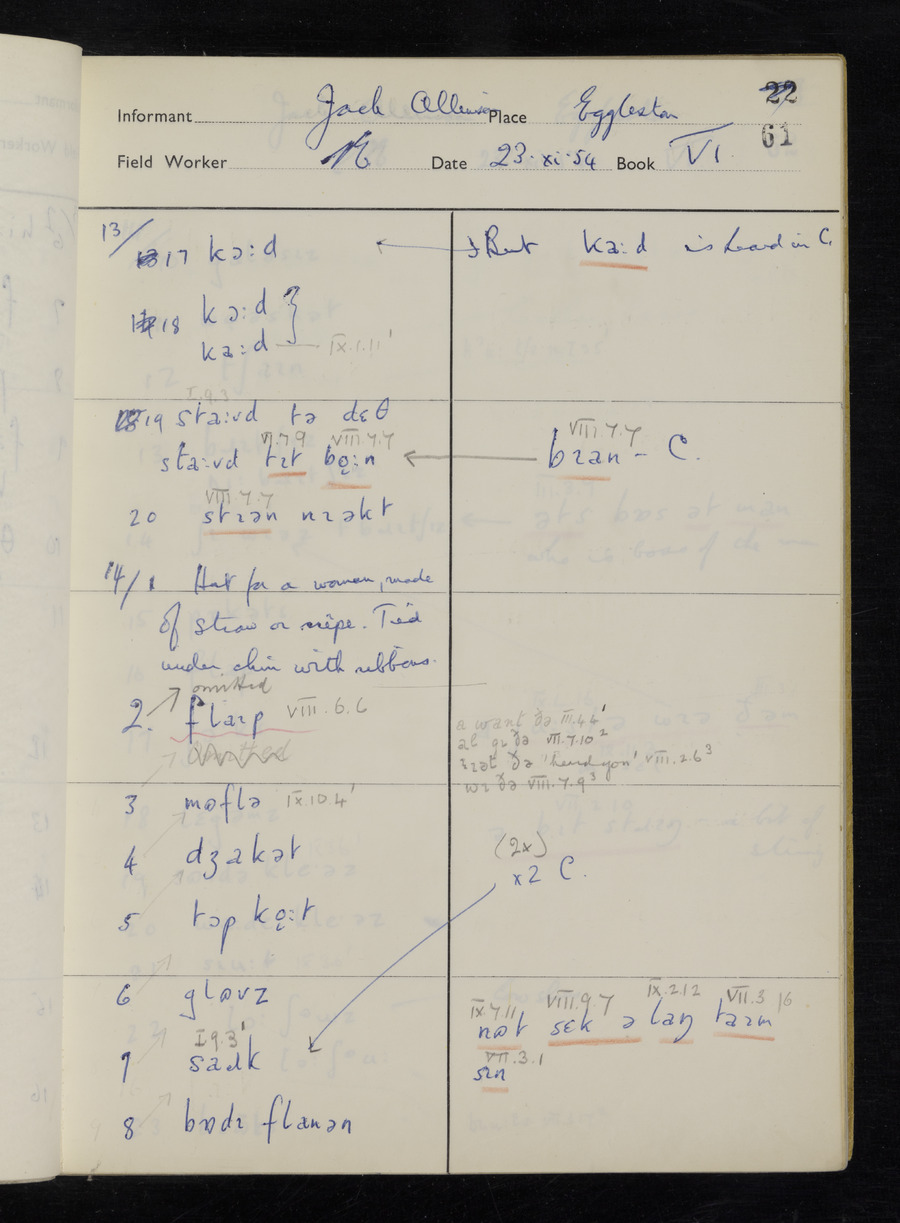 22
Informant Jack Allinson Place Eggleston
61
Field Worker Date 23.xi.54 Book VI.
13/17 kə:d
But ka:d is heard in C.
18 kə:d }
ka:d — IX.1.11'
I.9.3
19 sta:vd tə dɛθ
VII.7.9 VIII.7.7
sta:vd tɪt bǫ:n
VIII.7.7
bɪan - C.
VIII.7.7
20 stɪən nɪəkt
14/1 Hat for a woman, made
of straw or crêpe. Tied
under chin with ribbons.
omitted
2. flaɪp VIII.6.6
omitted
a want ðə III.4.6'
al gɪ ðə VII.7.10²
ðə 'heard you' VIII.2.6³
wɪ ðə VIII.7.9³
3 mɒflə IX.10.4'
4 dʒakət
5 tɔp kǫ:t
(2x)
x2 C.
6 glɒvz
I.9.3'
7 saɪk
8 bɒdɪ flanən
IX.7.11 VIII.9.7 IX.2.12 VII.3.16
nɒt sɛk ə laŋ taɪm
VII.3.1
sɪn